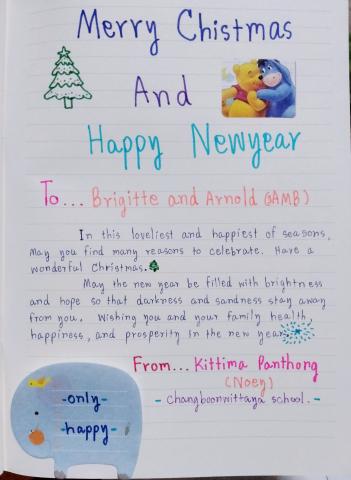 Merry Chistmas
And
Happy Newyear
To... Brigitte and Arnold (GAMB)
In this loveliest and happiest of seasons,
May you find many reasons to celebrate. Have a
wonderful Christmas.
May the new year be filled with brightness
and hope so that darkness and sandness stay away
from you. Wishing you and your family health,
happiness, and prosperity in the new year
From... Kittima Panthong
(Noey)
- Changboonwittaya school. -
-only-
-happy-